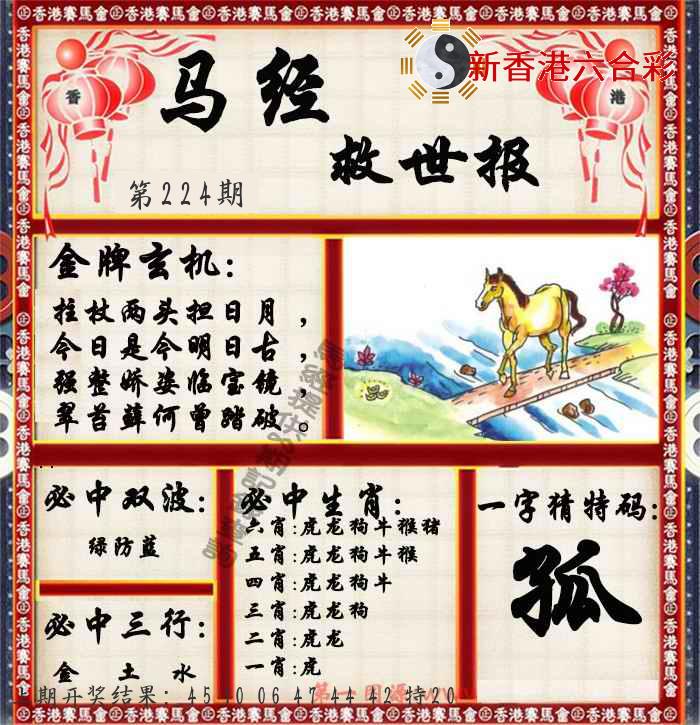 新香港六合彩
香
港
马经
救世报
第224期
金牌玄机:
拄杖两头担日月，
今日是今明日古，
强整娇姿临宝镜，
翠苔藓何曾踏破。
必中双波:
绿防蓝
必中三行:
金 土 水
必中生肖:
六肖:虎龙狗牛猴猪
五肖:虎龙狗牛猴
四肖:虎龙狗牛
三肖:虎龙狗
二肖:虎龙
一肖:虎
一字猜特码:
孤
期开奖结果: 45 40 06 47 44 42 特20
香港賽馬會